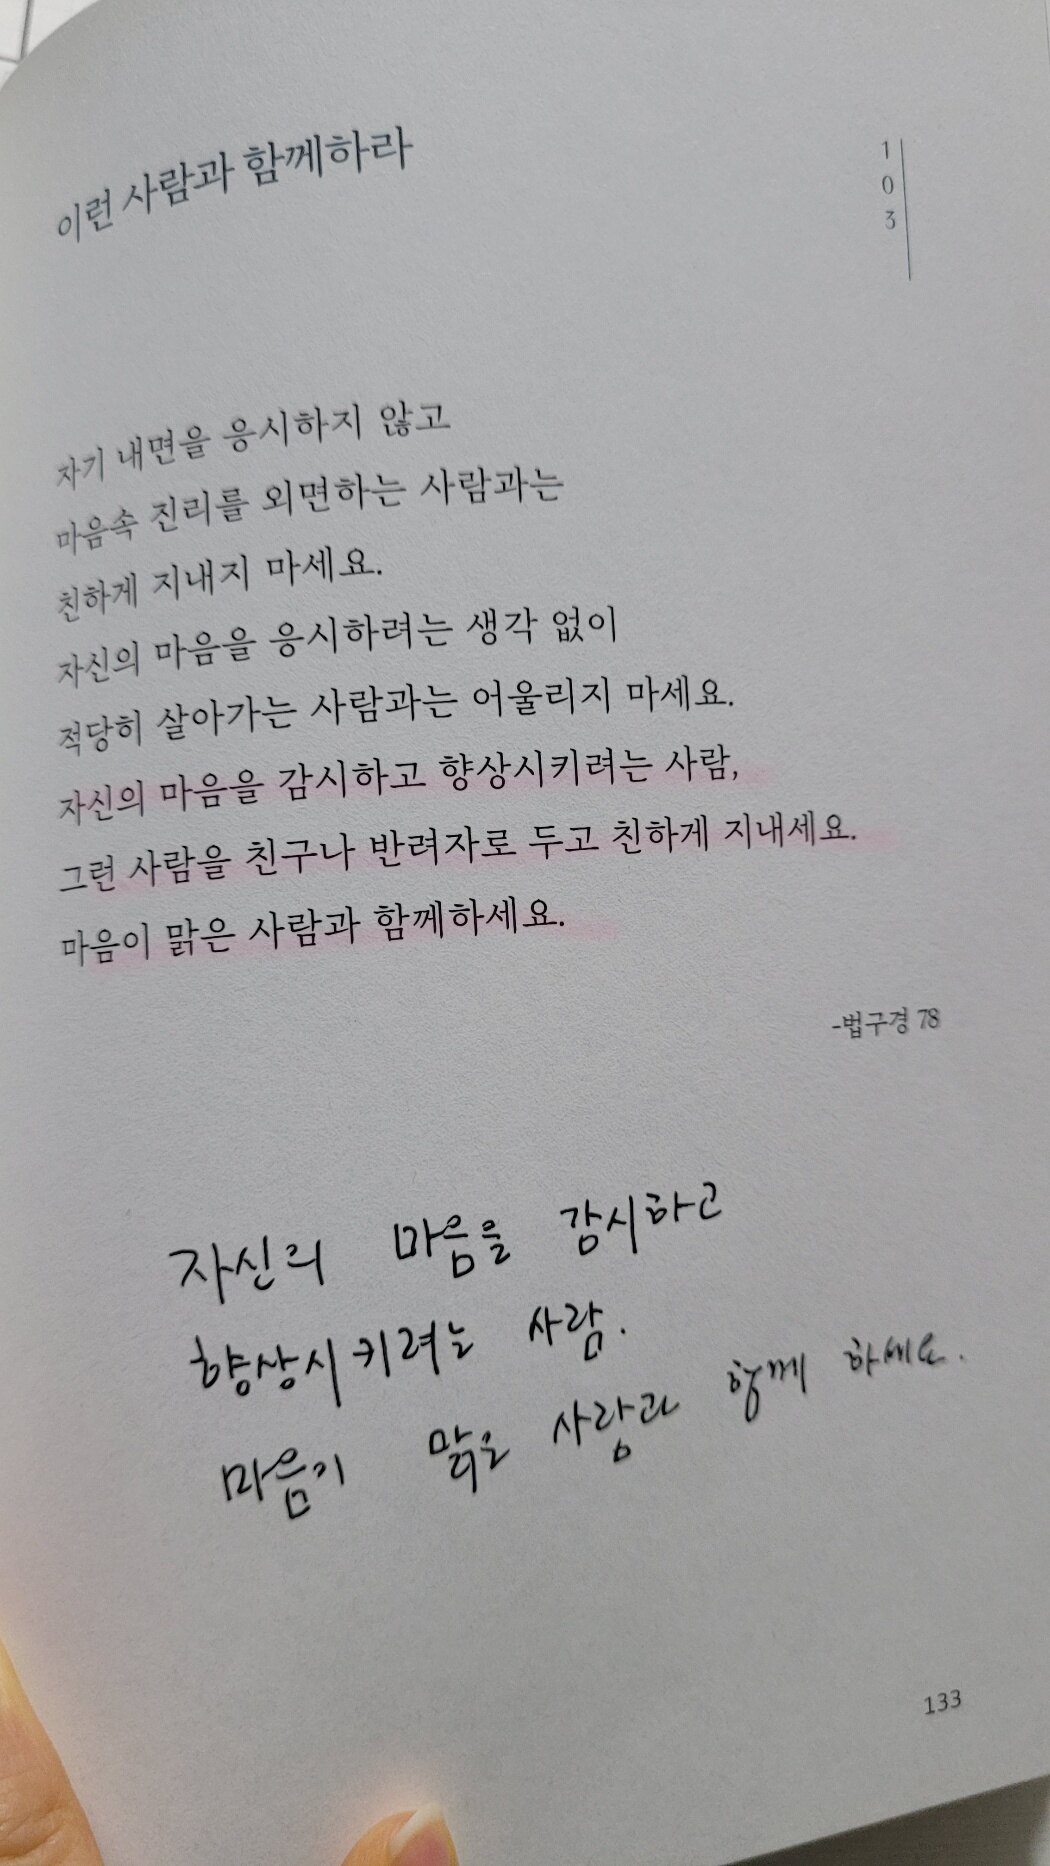 이런 사람과 함께하라
103
자기 내면을 응시하지 않고
마음속 진리를 외면하는 사람과는
친하게 지내지 마세요.
자신의 마음을 응시하려는 생각 없이
적당히 살아가는 사람과는 어울리지 마세요.
자신의 마음을 감시하고 향상시키려는 사람,
그런 사람을 친구나 반려자로 두고 친하게 지내세요.
마음이 맑은 사람과 함께하세요.
-법구경 78
자신의 마음을 감시하고
향상시키려는 사람.
마음이 맑은 사람과 함께 하세요.
133